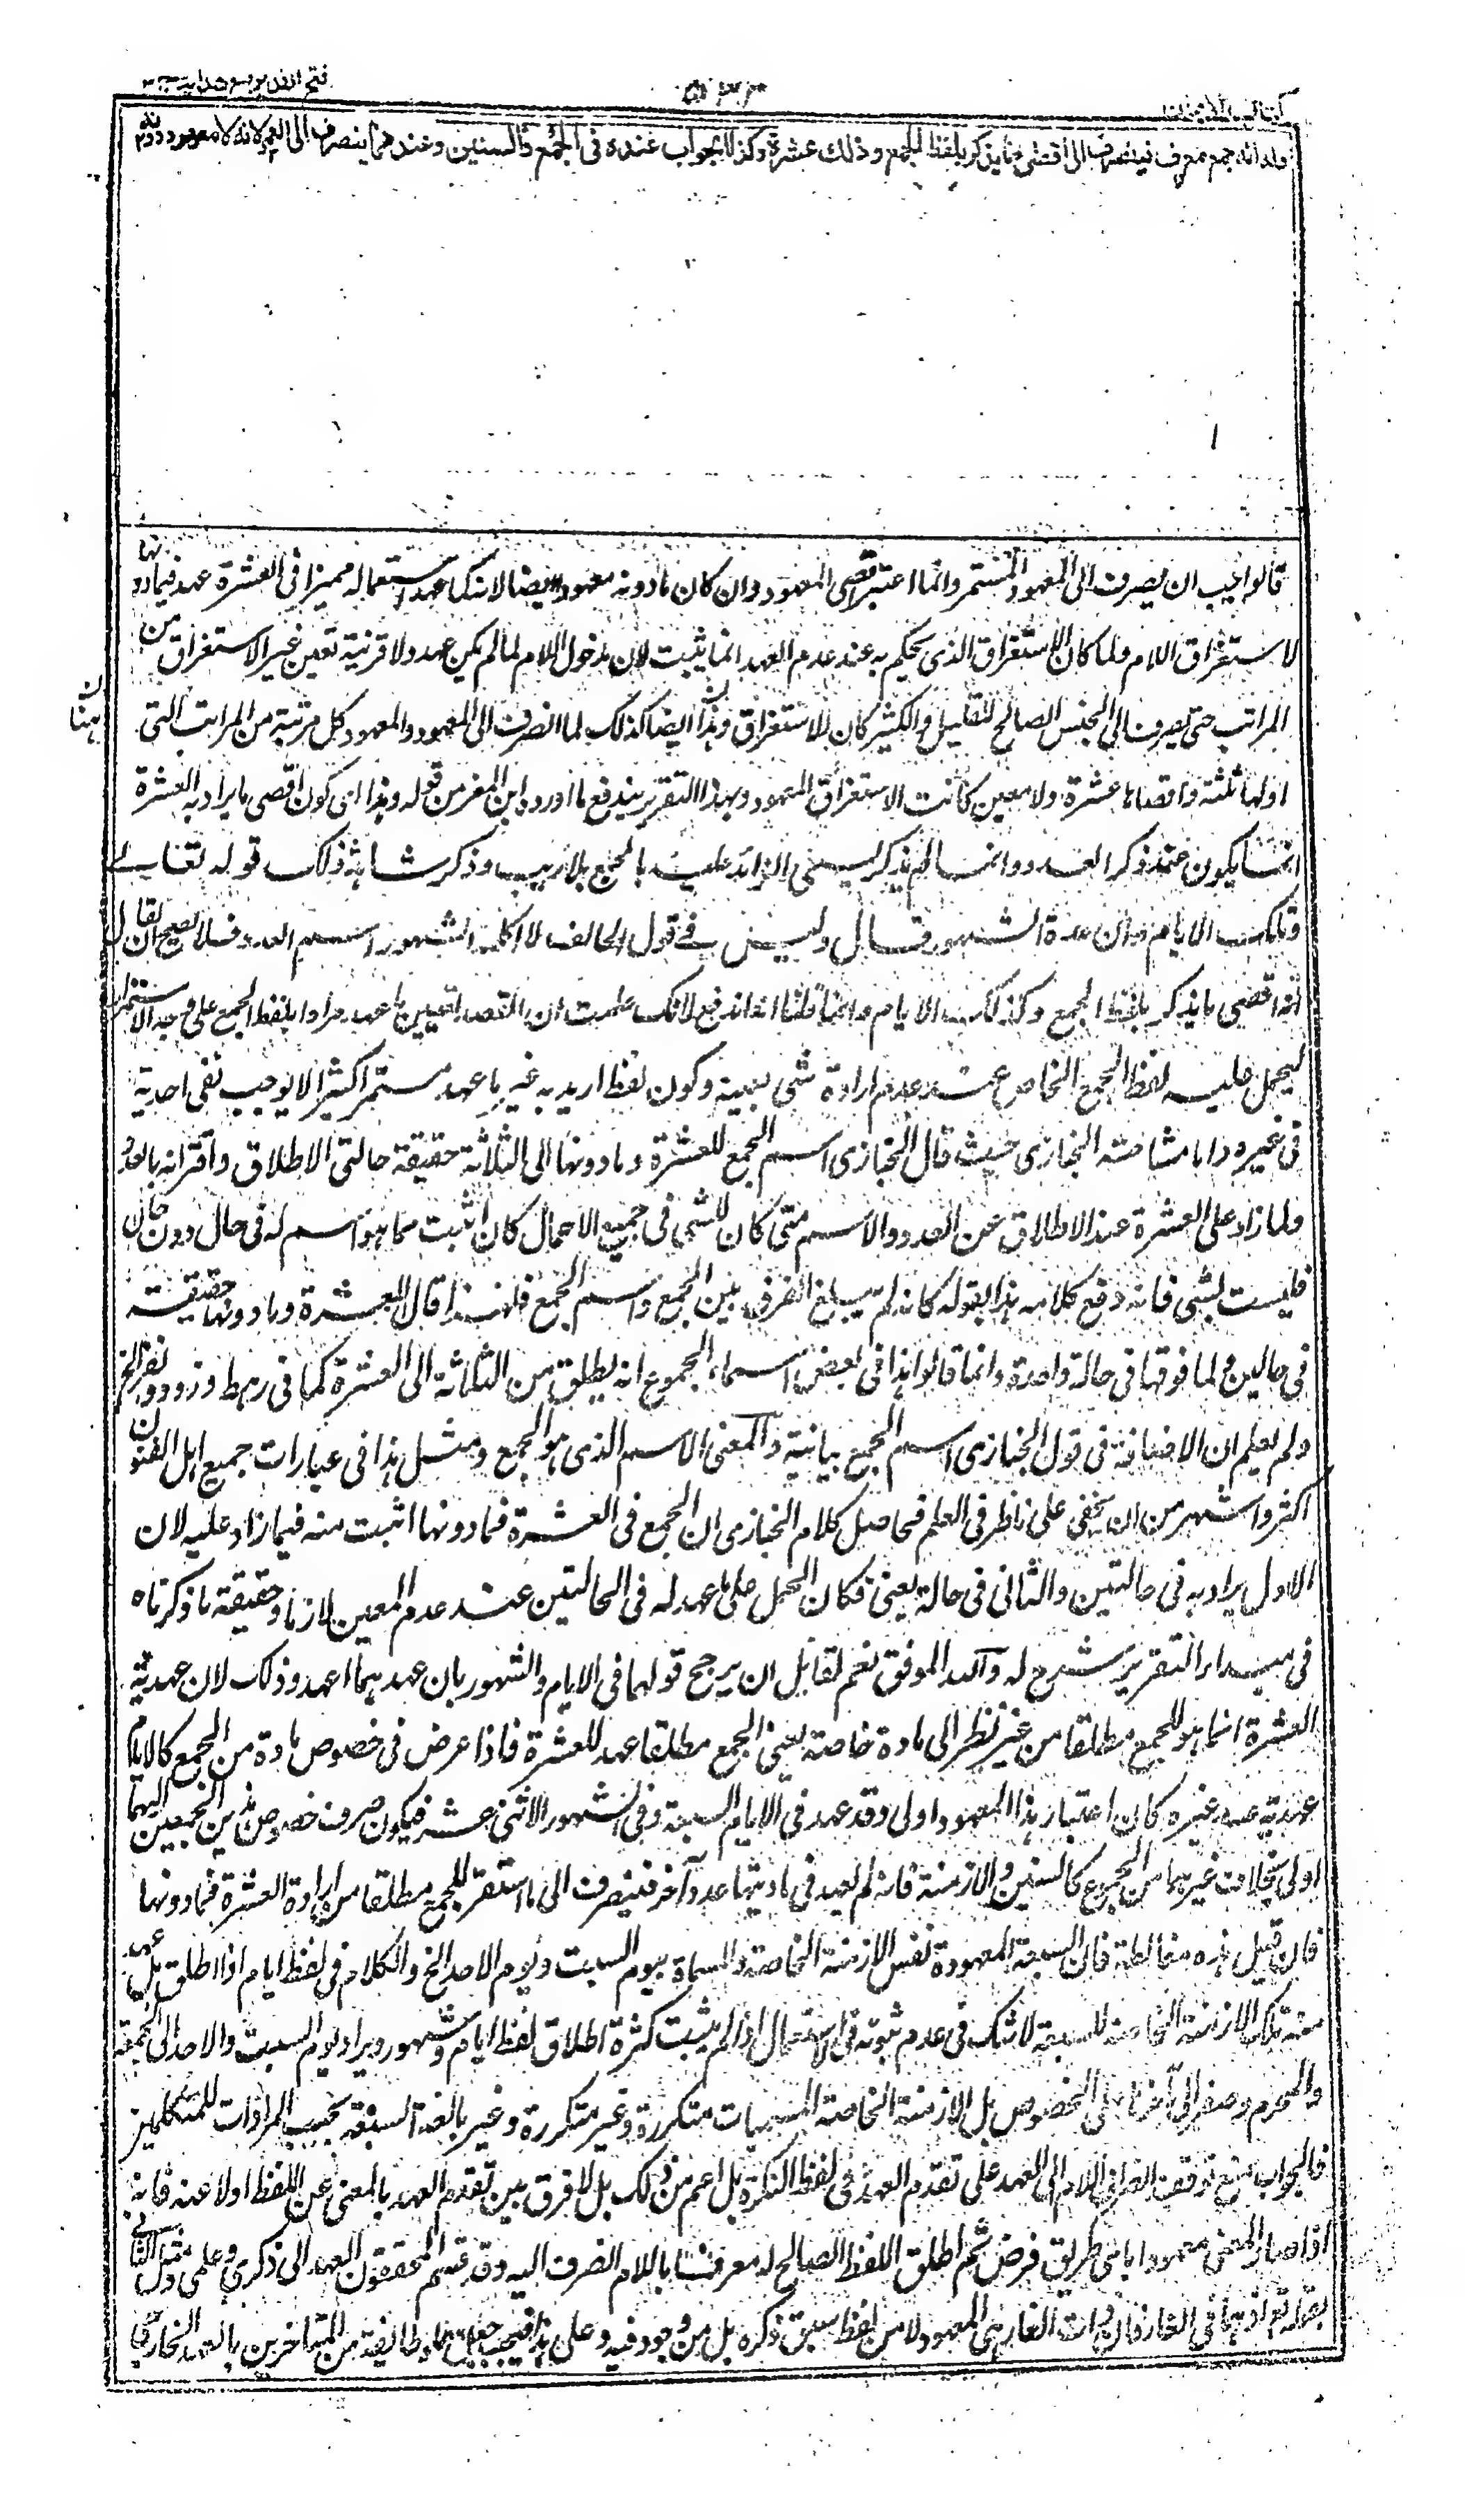 فتح القدير مع هداية ج ٢
كتاب الايمان
وله انه جمع معرف فينصرف الى اقصى ما يذكر بلفظ الجمع وذلك عشرة وكذا الجواب عنده فى الجمع والسنين وعندهما ينصرف الى العمر لانه لا معهود دونه
قالوا يجب ان يصرف الى المعهود المستمر وانما اعتبر اقصى المعهود وان كان ما دونه معهودا ايضا لانه كما عهد استعماله مميزا فى العشرة عهد فيما دونها
لاستغراق اللام ولما كان الاستغراق الذى يحكم به عند عدم العهد انما يثبت لان مدخول اللام لما لم يكن عهد ولا قرينة تعين غير الاستغراق من
المراتب حتى يصرف الى الجنس الصالح للقليل والكثير كان للاستغراق وهذا ايضا كذلك لما انصرف الى المعهود والمعهود كل مرتبة من المراتب التى
اولها ثلثة واقصاها عشرة ولا معين كانت لاستغراق المعهود وبهذا التقرير يندفع ما اورده ابن المعز من قوله وهذا اى كون اقصى ما يراد به العشرة
انما يكون عند ذكر العدد واما اذا لم يذكر يسمى الزائد عليه بالجمع بلا ريب وذكر شاهد ذلك قوله تعالى
وتلك الايام وان عدة الشهور قال وليس فى قول الحالف لا اكلمه الشهور اسم العدد فلا يصح ان يقال
انه اقصى ما يذكر بلفظ الجمع وكذلك الايام وانما قلنا انه اندفع لانك علمت ان القصد تعيين ما عهد مرادا بلفظ الجمع على وجه الاستمرار
ليحمل عليه لفظ الجمع الخاص عند عدم ارادة شىء بعينه وكون لفظ اريد به غير ما عهد مستمرا كثيرا لا يوجب نفى احدية
فى غيره واما مشاحته الخبازى حيث قال الخبازى اسم الجمع للعشرة وما دونها الى الثلاثة حقيقة حالتى الاطلاق واقترانه بالعدد
ولما زاد على العشرة عند الاطلاق عن العدد والاسم متى كان للشىء فى جميع الاحوال كان اثبت مما هو اسم له فى حال دون حال
فليست بشىء فانه دفع كلامه هذا بقوله كانه لم يبلغ الفرق بين الجمع واسم الجمع فلهذا قال للعشرة وما دونها حقيقة
فى حالين ولما فوقها فى حالة واحدة وانما قالوا هذا فى بعض اسماء الجموع انه يطلق من الثلاثة الى العشرة كما فى رهط وذود ونفر الخ
ولم يعلم ان الاضافة فى قول الخبازى اسم الجمع بيانية والمعنى الاسم الذى هو الجمع ومثل هذا فى عبارات جميع اهل الفنون
اكثر واشهر من ان يخفى على ناظر فى العلم فحاصل كلام الخبازى ان الجمع فى العشرة فما دونها اثبت منه فيما زاد عليه لان
الاول يراد به فى حالتين والثانى فى حالة يعنى فكان الحمل على ما عهد له فى الحالتين عند عدم المعين لازما وحقيقة ما ذكرناه
فى مبدا التقرير شرح له والله الموفق نعم لقائل ان يرجح قولهما فى الايام والشهور بان عهدهما اعهد وذلك لان عهدية
العشرة انما هو للجمع مطلقا من غير نظر الى مادة خاصة يعنى الجمع مطلقا عهد للعشرة فاذا عرض فى خصوص مادة من الجمع كالايام
عهدية عدد غيره كان اعتبار هذا المعهود اولى وقد عهد فى الايام السبعة وفى الشهور الاثنى عشر فيكون صرف خصوص هذين الجمعين اليهما
اولى بخلاف غيرهما من الجموع كالسنين والازمنة فانه لم يعهد فى مادتيهما عدد آخر فينصرف الى ما استقر للجمع مطلقا من ارادة العشرة فما دونها
فان قيل هذه مغالطة فان السبعة المعهودة نفس الازمنة الخاصة المسماة بيوم السبت ويوم الاحد الخ والكلام فى لفظ ايام اذا اطلق هل عهد
منه تلك الازمنة الخاصة السبعة لا شك فى عدم ثبوته فى الاستعمال اذا لم يثبت كثرة اطلاق لفظ ايام وشهور ويراد يوم السبت والاحد الى الجمعة
والمحرم وصفر الى آخرها على الخصوص بل الازمنة الخاصة المسميات متكررة وغير متكررة وغير بالغة السبعة بحسب المرادات للمتكلمين
فالجواب منع توقف انصراف اللام الى العهد على تقدم العهد فى لفظ النكرة بل اعم من ذلك بل لا فرق بين تقدم العهد بالمعنى عن اللفظ اولا عنه فانه
اذا صار المعنى معهودا باى طريق فرض ثم اطلق اللفظ الصالح له معرفا باللام انصرف اليه وقد قسم المحققون العهد الى ذكرى وعلمى ومثل الثانى
بقوله تعالى اذ هما فى الغار فان ذات الغار هى المعهود لا من لفظ سبق ذكره بل من وجود فيه وعلى هذا فيجب جعل ما سماه طائفة من المتاخرين بالعهد الخارجى